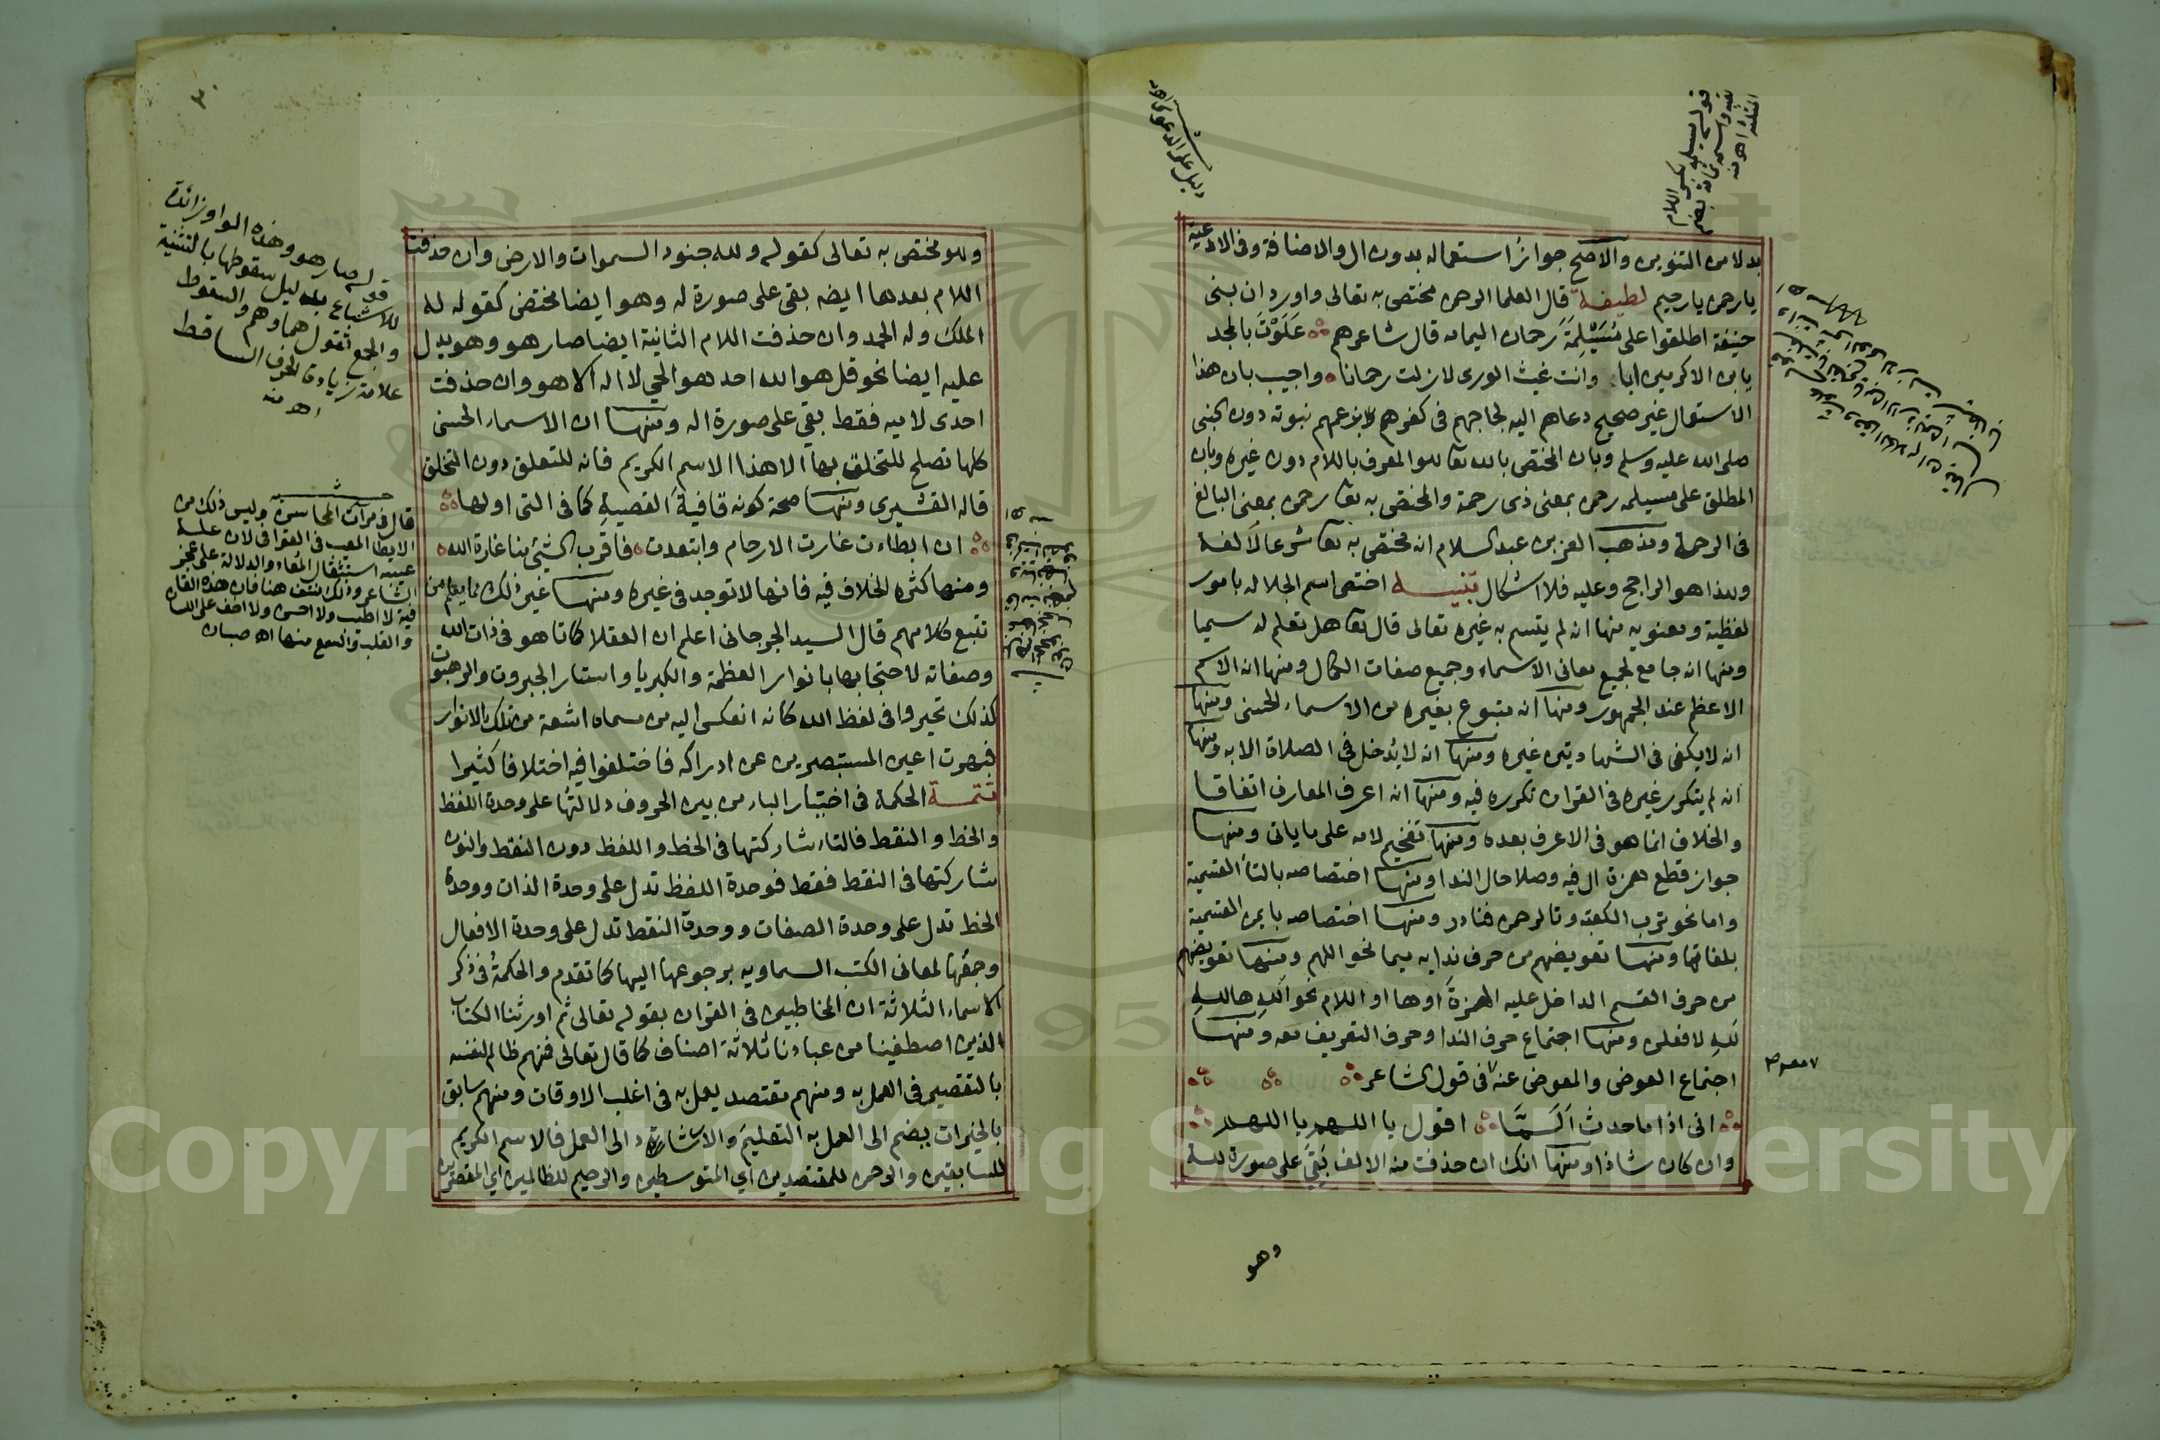 بدلا من التنوين والاصح جوازُ استعماله بدون ال والاضافة وفى الادعية
يارحمن يارحيم لطيفة قال العلما الرحمن مختص به تعالى واورد ان بنى
حنيفة اطلقوا على مُسَيْلِمَةَ رَحمان اليمامه قال شاعرهم عَلَوْتَ بالمجد
يا بن الاكرمين ابا وانت غيث الورى لازلت رحمانا واجيب بان هذا
الاستعمال غير صحيح دعاهم اليه لجاجهم فى كفرهم بزعمهم نبوته دون النبى
صلى الله عليه وسلم وبان المختص بالله تعا هو المعرف باللام دون غيره وبان
المطلق على مسيلمه رحمن بمعنى ذى رحمة والمختص به تعا رحمن بمعنى البالغ
فى الرحمة ومذهب العز بن عبد السلام انه مختص به تعا شرعا لا لغة
وهذا هو الراجح وعليه فلا اشكال تنبيه اختص اسم الجلاله بامور
لفظية ومعنويه منها انه لم يتسم به غيره تعالى قال تعا هل تعلم له سميا
ومنها انه جامع لجميع معانى الاسماء وجميع صفات الكمال ومنها انه الاسم
الاعظم عند الجمهور ومنها انه متبوع بغيره من الاسماء الحسنى ومنها
انه لايكفى فى الشهادتين غيره ومنها انه لايُدخل فى الصلاة الا به ومنها
انه لم يتكرر غيره فى القران تكرره فيه ومنها انه اعرف المعارف اتفاقا
والخلاف انما هو فى الاعرف بعده ومنها تفخيم لامه على ما ياتى ومنها
جواز قطع همزة ال فيه وصلا حال الندا ومنها اختصاصه بالتا القسمية
واما نحو ترب الكعبة وتا لرحمن فنادر ومنها اختصاصه بايمن القسمية
بلغاتها ومنها تعويضهم من حرف ندايه ميما نحو اللهم ومنها تعويضهم
من حرف القسم الداخل عليه الهمزةَ او ها او اللام نحو اَللهِ ها للهِ
للهِ لافعلن ومنها اجتماع حرف الندا وحرف التعريف معه ومنها
اجتماع العوض والمعوض عنه فى قول الشاعر
انى اذا ما حدث اَلَمَّا اقول يا اللهم يا اللهم
وان كان شاذا ومنها انك ان حذفت منه الالف بَقِىَ على صورة لله
وهو
دليل على الدعوى اه
وهو مختص به تعالى كقوله ولله جنود السموات والارض وان حذفت
اللام بعدها ايضه بقى على صورة له وهو ايضا مختص كقوله له
الملك وله الحمد وان حذفت اللام الثانية ايضا صار هو وهو يدل
عليه ايضا نحو قل هو الله احد هو الحي لا اله الا هو وان حذفت
احدى لاميه فقط بقي على صورة اله ومنها ان الاسماء الحسنى
كلها تصلح للتخلق بها الا هذا الاسم الكريم فانه للتعلق دون التخلق
قاله القشيرى ومنها صحة كونه قافية القصيدة كما فى التى اولها
ان ابطاءت غارت الارحام وابتعدت فاقرب الشئ بنا غارة الله
ومنها كثره الخلاف فيه فانها لاتوجد فى غيره ومنها غير ذلك مما يعلم من
تتبع كلامهم قال السيد الجرجانى اعلم ان العقلا كما تاهو فى ذات الله
وصفاته لاحتجابها بانوار العظمة والكبريا واستار الجبروت والرهبوت
كذلك تحيروا فى لفظ الله كانه انعكس اليه من مسماه اشعة من تلك الانوار
فبهرت اعين المستبصرين عن ادراكه فاختلفوا فيه اختلافا كثيرا
تتمة الحكمة فى اختيار الباء من بين الحروف دلالتُها على وحدة اللفظ
والخط والنقط فالتاء شاركتها فى الخط واللفظ دون النقط والنون
شاركتها فى النقط فقط فوحدة اللفظ تدل على وحدة الذات ووحدة
الخط تدل على وحدة الصفات ووحدة النقط تدل على وحدة الافعال
وجمعُها لمعانى الكتب السماويه برجوعها اليها كما تقدم والحكمةُ فى ذكر
الاسماء الثلاثة ان المخاطبين فى القران بقوله تعالى ثم اورثنا الكتاب
الذين اصطفينا من عبادنا ثلاثة اصناف كما قال تعالى فمنهم ظالم لنفسه
بالتقصير فى العمل به ومنهم مقتصد يعمل به فى اغلب الاوقات ومنهم سابق
بالخيرات يضم الى العمل به التعليمَ والارشاد الى العمل فالاسم الكريم
للسابقين والرحمن للمقتصدين اي المتوسطين والرحيم للظالمين اي المقصرين
قوله صار هو وهذه الواو زائدة
للاشباع بدليل سقوطها بالتثنية
والجمع تقول هما وهم والسقوط
علامة زيادة الحرف الساقط
اهـ منه
قال فى مرآت المحاسن وليس ذلك من
الايطا المعيب فى القوافى لان علة
عيبه استثقال المعاد والدلالة على عجز
الشاعر وذلك منتف هنا فان هذه القا
فية لا اطيب ولا احسن ولا اخف على اللسان
والقلب والسمع منها اهـ صبان
Copyright © King Saud University